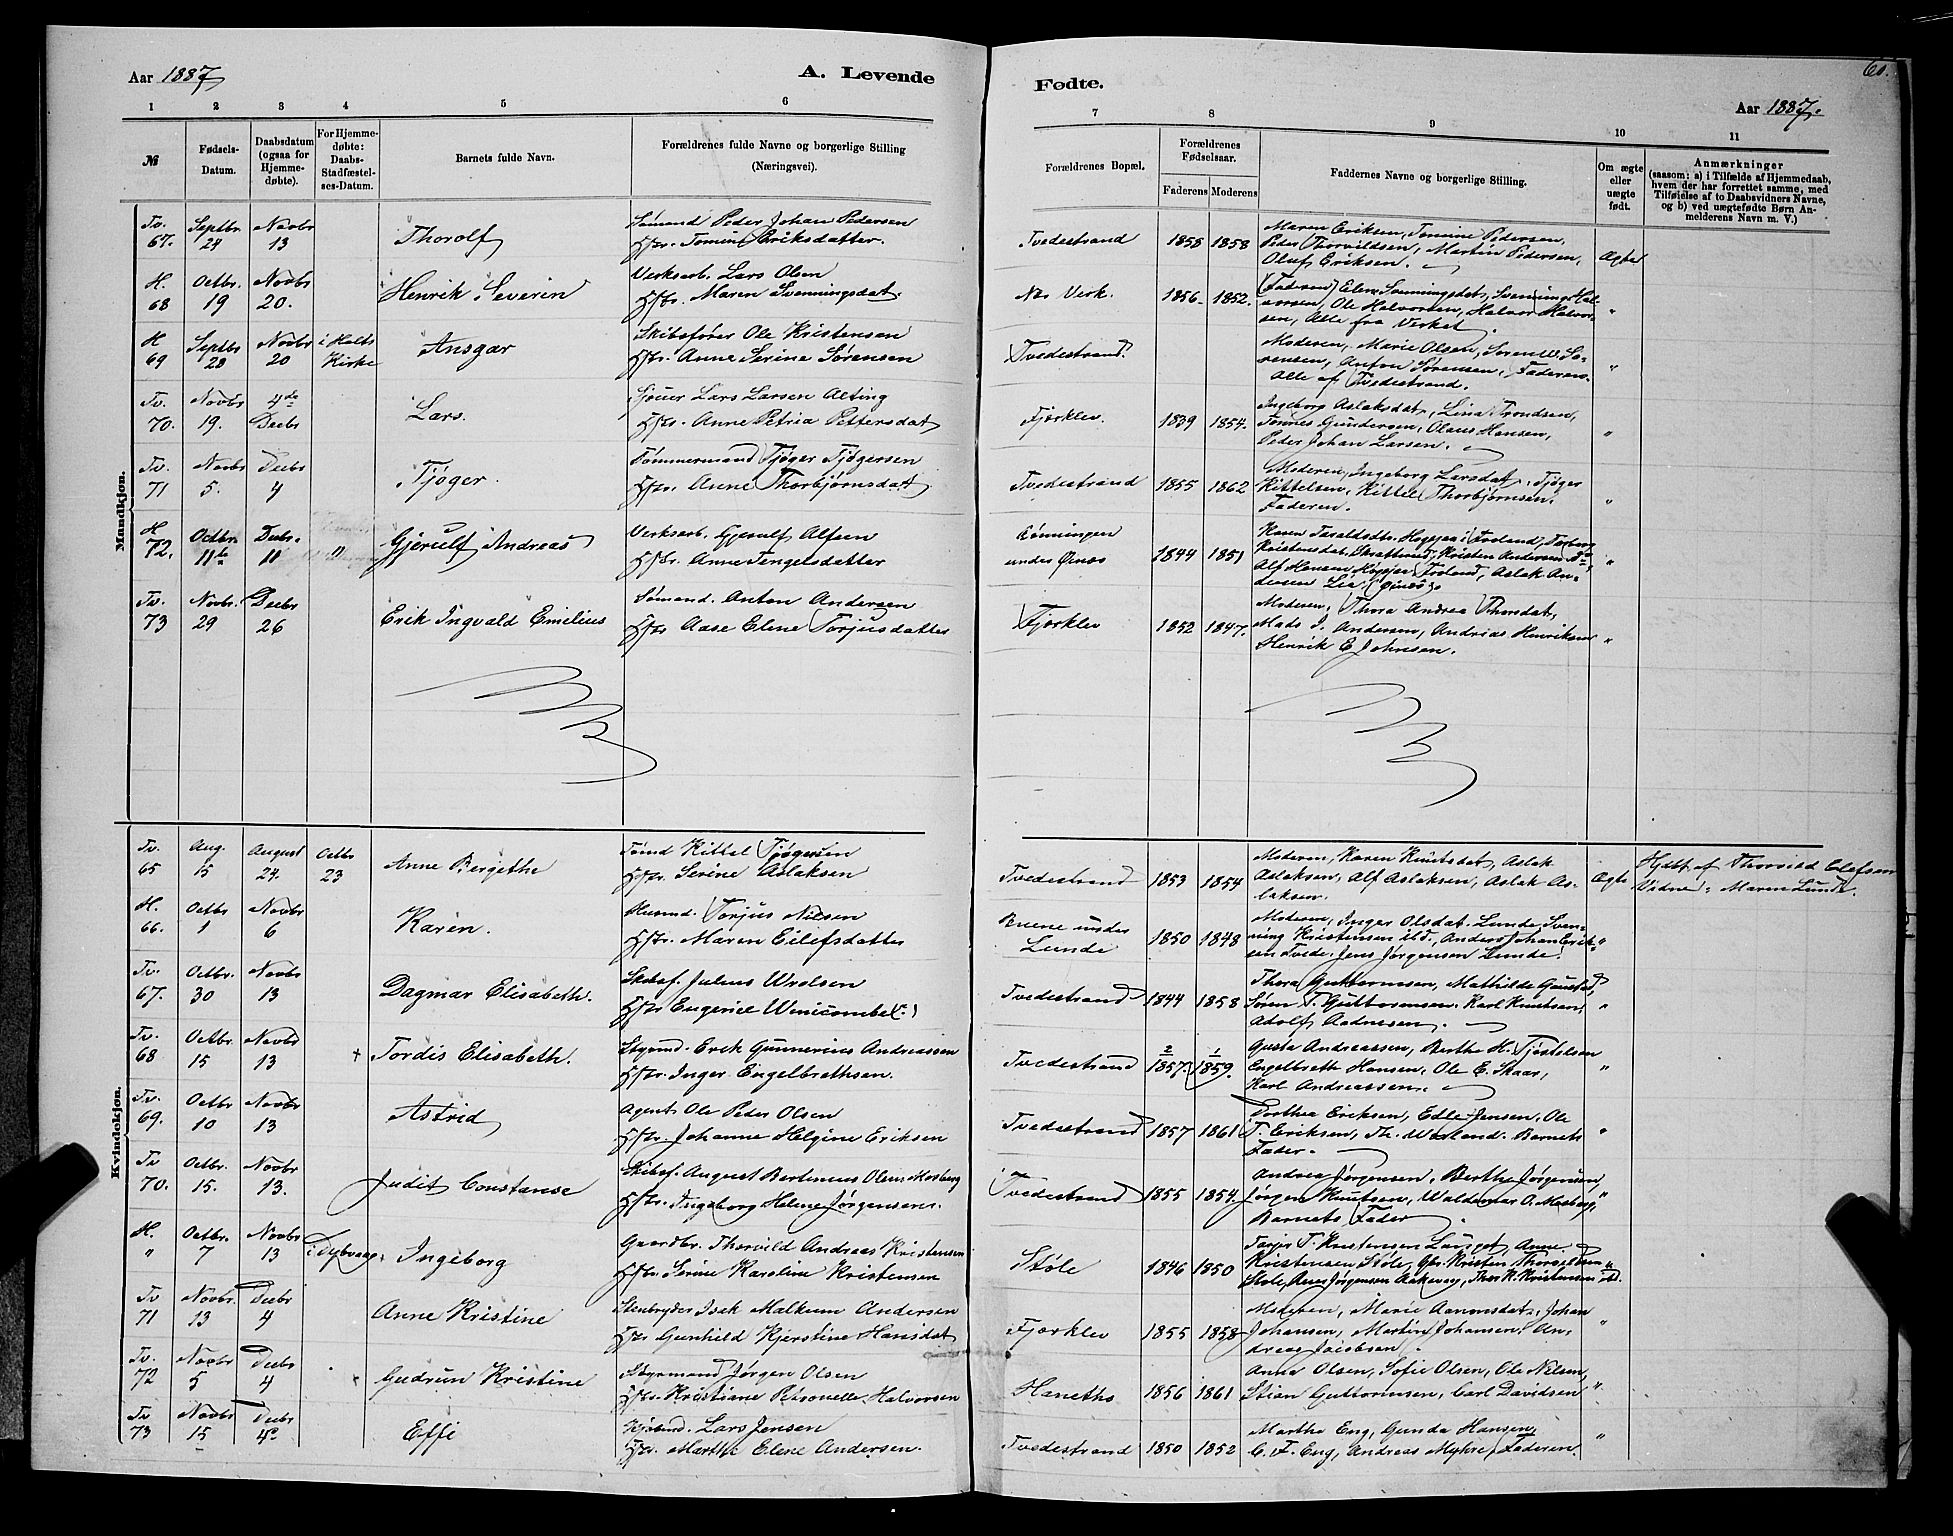 Aar 1887
A. Levende
Fødte.
60.
Aar 1887.
1 2 3 4 5 6 7 8 9 10 11
№
Fødsels-
Datum.
Daabsdatum
(ogsaa for
Hjemme-
døbte).
For Hjemme-
døbte:
Daabs-
Stadfæstel-
ses-Datum.
Barnets fulde Navn.
Forældrenes fulde Navne og borgerlige Stilling
(Næringsvei).
Forældrenes Bopæl.
Forældrenes
Fødselsaar.
Faderens Moderens
Faddernes Navne og borgerlige Stilling.
Om ægte
eller
uægte
født.
Anmærkninger
(saasom: a) i Tilfælde af Hjemmedaab,
hvem der har forrettet samme, med
Tilføielse af to Daabsvidners Navne,
og b) ved uægtefødte Børn An-
melderens Navn m. V.)
Mandkjøn.
Tv. 67. Septbr. 24 Novbr 13
Thorolf
Sømand Peder Johan Pedersen
Hstr. Tomine Eriksdatter.
Tvedestrand 1855 1858
Maren Eriksen, Tomine Pedersen,
Peder Thorvildsen, Martin Pedersen,
Oluf Eriksen.
Ægte
H. 68 Octbr. 19 Novbr 20.
Henrik Severin
Verksarb. Lars Olsen
Hstr. Maren Svenningsdat.
Næs Verk. 1856. 1852.
Faderen, Elen Svenningsdat, Svenning Hal-
vorsen, Ole Halvorsen, Halvor Halvor-
sen, Alle fra Verket.
"
H 69 Septbr 28 Novbr 20 i Holts Kirke
Ansgar
Skibsfører Ole Kristensen
Hstr. Anne Serine Sørensen
Tvedestrand.
Moderen, Marie Olsen, Søren W. Sø-
rensen, Anton Sørensen, Faderen.
Alle af Tvedestrand.
"
Tv. 70. Novbr 19. 4de Decbr
Lars.
Sjouer Lars Larsen Alting
Hstr. Anne Petria Pettersdat
Fjørklev. 1839 1854.
Ingeborg Aslaksdat, Lina Trondsen,
Tønnes Gundersen, Olaus Hansen,
Peder Johan Larsen.
"
Tv. 71 Novbr 5. Decbr 4
Tjøger.
Tømmermand Tjøger Tjøgersen
Hstr. Anne Thorbjørnsdat
Tvedestrand 1855 1862
Moderen, Ingeborg Larsdat, Tjøger
Kittelsen, Kittel Thorbjørnsen.
Faderen.
"
H 72. Octbr. 11te Decbr. 11 "
Gjerulf Andreas
Verksarb. Gjerulf Alfsen
Hstr. Anne Tengelsdatter
Rønningen
under Øinæs 1844 1851
Karen Taraldsdtr. Heggja i Froland, Torborg
Kristensdat. Kristen Andersen Do,
Alf Hansen Heggja Froland, Aslak An-
dersen Lia Øinæs.
"
Tv. 73 Novbr. 29 Decbr 26
Erik Ingvald Emelius
Sømand. Anton Andersen
Hstr Aase Elene Torjusdatter
Fjørklev 1852 1847.
Moderen, Thora Andrea Thorsdat,
Mads J. Andersen, Andrias Henriksen
Henrik E. Johnsen.
"
Kvindekjøn.
Tv. 65 Aug. 15 August 24. Octbr 23
Anne Bergethe
Tømd Kittel Tjøgersen
Hstr. Serine Aslaksen
Tvedestrand 1853 1854
Moderen, Karen Knutsdat, Aslak
Aslaksen, Alf Aslaksen, Aslak As-
laksen.
Ægte
Hjdbt. af Thorvald Olefsen
Vidne: Maren Lunde.
H. 66. Octbr 1 Novbr 6
Karen.
Husmd. Torjus Nilsen
Hstr. Maren Eilefsdatter
under
Lunde 1850 1848
Moderen, Inger Olsdat. Lunde, Sven-
ning Kristensen ibd., Anders Johan Erik-
sen Tvede, Jens Jørgensen Lunde.
"
Tv. 67. Octbr. 30 Novbr 13
Dagmar Elisabeth.
Skibsf. Julius Wrolsen
Hstr Eugenie Winicombe (?)
Tvedestrand 1844 1858
Thora Guttormsen, Mathilde Gaustad,
Søren T. Guttormsen, Karl Knutsen,
Adolf Aadnesen.
"
Tv. 68 Octbr 15 Novbr 13
+ Tordis Elisabeth.
Styrmd. Erik Gunnerius Andreassen
Hstr. Inger Engelbrethsen.
Tvedestrand 2/1857. 1/1859.
Gusta Andreassen, Berthe H. Tjøstelsen
Engelbreth Hansen, Ole E. Skaar,
Karl Andreassen.
"
Tv. 69. Octbr 10 Novbr. 13
Astrid
Agent Ole Peder Olsen
Hstr. Johanne Helgine Eriksen
Tvedestrand 1857 1861
Dorthea Eriksen, Edle Jensen, Ole
T. Eriksen, Th. Wærland. Barnets
Fader.
"
Tv 70. Octbr. 15. Novbr 13.
Judit Constanse
Skibsf. August Bertinius Olsen Mosberg
Hstr. Ingeborg Helene Jørgensen.
Tvedestrand 1855 1854.
Andrea Jørgensen, Berthe Jørgensen,
Jørgen Knutsen, Waldemar O. Mosberg,
Barnets Fader.
"
H. " Octbr. 7 Novbr 13 i Dybvaag.
Ingeborg
Gaardbr. Thorvild Andreas Kristensen
Hstr. Serine Karoline Kristensen
Støle 1846 1850
Kristensen Støle, Gbr. Kristen
Støle, Jørgensen Thor K. Kristensen ibd.
"
Tv 71 Novbr. 13 Decbr 4
Anne Kristine
Stenbryder Isak Malkum Andersen
Hstr Gunhild Kjerstine Hansdat
Fjørklev 1855 1858
Moderen, Marie Aanonsdat, Johan
Johansen, Martin Johansen, An-
dreas Jacobsen.
"
Tv. 72 Novbr 5 Decbr 4
+ Gudrun Kristine
Styrmand Jørgen Olsen
Hstr. Kristiane Petronelle Halvorsen
Haneths 1856 1861
Anna Olsen, Sofie Olsen, Ole Nilsen,
Stian Guttormsen, Carl Davidsen
"
Tv 73 Novbr 15 Decbr 4de
Effi
Kjøbmd. Lars Jensen
Hstr. Marthe Elene Andersen.
Tvedestrand 1850 1852
Marthe Eng, Gunda Hansen,
C. F. Eng, Andreas Myhre, Faderen.
"